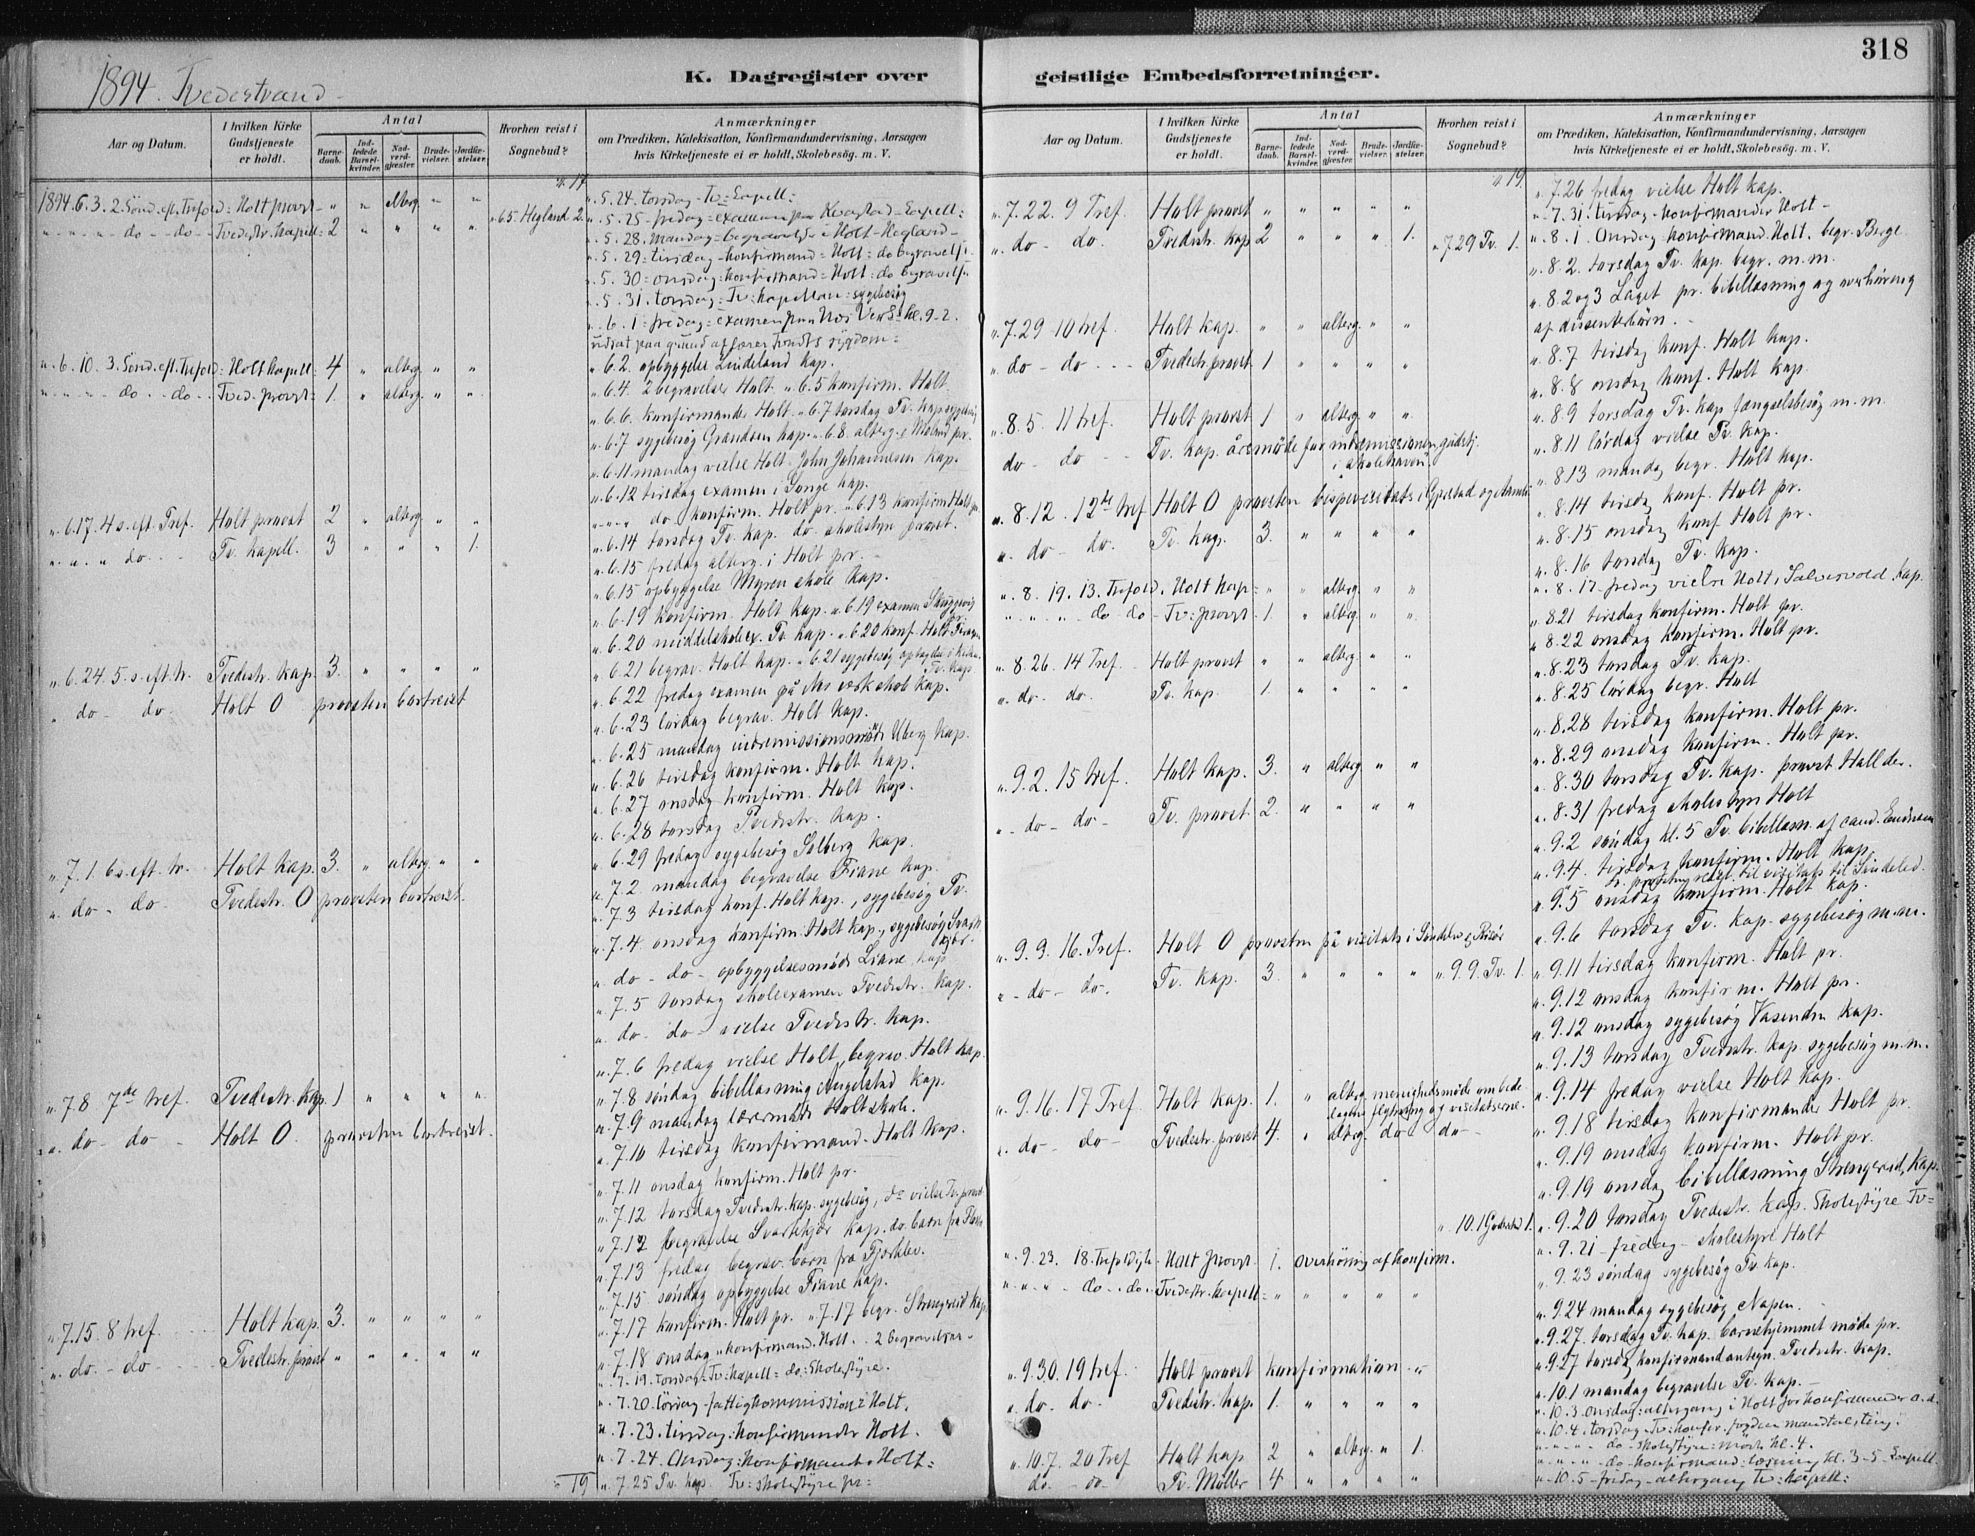 318
1894. Tvedestrand
K. Dagregister over
geistlige Embedsforretninger.
Aar og Datum.
I hvilken Kirke Gudstjeneste er holdt.
Antal
Barnedaab.
Indledede Barselkvinder.
Nadverdgjester.
Brudevielser.
Jordfæstelser.
Hvorhen reist i Sognebud?
Anmærkninger
om Prædiken, Katekisation, Konfirmandundervisning, Aarsagen
hvis Kirketjeneste ei er holdt, Skolebesøg. m. V.
1894. 6. 3. 2. Sønd. eft. Trefold: Holt provst - " " alterg. " "
" " " do - do - Tvedestr. kapell: 2 " " " "
" 6 5 Hegland 2.
" 6. 10. 3. Sønd. eft. Trefold: Holt kapell: 4 " alterg. " "
" " " do - do - Tved. provst: 1. " alterg. " "
" 6. 17. 4 s. eft. Tref. Holt provst 2 " alterg. " "
" " " do - Tv. kapell. 3 " " " 1.
" 6. 24. 5. s. eft. tr. Tvedestr. kap. 3. " " " "
" do - do. Holt 0 provsten bortreist
" 7. 1. 6 s. eft. tr. Holt kap. 3. " alterg. " "
" do - do. Tvedestr. 0 provsten bortreist.
" 7. 8 7de tref. Tvedestr. kap. 1 " " " "
" do - do - Holt 0. provsten bortreist.
" 7. 15. 8 tref. Holt kap. 3. " " " "
" do - do - Tvedestr. provst " " " " "
" 5. 24. torsdag - Tv = Capell:
" 5. 25 - fredag = examen paa Kvastad - Capell:
" 5. 28. Mandag - begravelse i Holt - Hegland -
" 5. 29 = tirsdag - konfirmand = Holt: do begravelse
" 5. 30 = onsdag = konfirmand = Holt: do begravelse
" 5. 31. torsdag = Tv = kapellan = sygebesøg
" 6. 1 = fredag = examen paa Næs Verk = kl. 9-2.
" 6 2. opbyggelse Lindeland kap.
" 6 4. 2 begravelser Holt. " 6. 5 konfirm. Holt
" 6 6. konfirmander Holt. " 6 7 torsdag Tv. kap. sygebesøg
" 6 7 sygebesøg Grandsen kap. " 6 8. alterg. i Moland pr.
" 6 11 mandag vielse Holt. John Johannesen kap.
" 6. 12 tirsdag examen i Songe kap.
" " " do konfirm. Holt pr. " 6. 13 konfirm. Holt pr.
" 6. 14 torsdag Tv. kap. do. skolestyre provst.
" 6. 15 fredag alterg. i Holt pr.
" 6. 15 opbyggelse Myren skole kap.
" 6. 19 konfirm. Holt kap. " 6. 19 examen
" 6. 20 middelskoleex. Tv. kap. " 6. 20 konf. Holt
" 6. 21 begrav. Holt kap. " 6. 21 sygebesøg
Tv. kap.
" 6. 22 fredag examen på Næs verk skole kap.
" 6. 23 lørdag begrav. Holt kap.
" 6. 25 mandag indremissionsmøde Uberg kap.
" 6. 26 tirsdag konfirm. Holt kap.
" 6. 27 onsdag konfirm. Holt kap.
" 6. 28 torsdag Tvedestr. kap.
" 6. 29 fredag sygebesøg Solberg kap.
" 7. 2 mandag begravelse Fiane kap.
" 7. 3 tirsdag konf. Holt kap., sygebesøg Tv.
" 7. 4. onsdag konfirm. Holt kap., sygebesøg
" do - do - opbyggelsesmøde Liane kap
" 7. 5 torsdag skoleexamen Tvedestr. kap.
" do - do - vielse Tvedestr. kap.
" 7. 6 fredag vielse Holt, begrav. Holt kap.
" 7. 8 søndag bibellæsning Angelstad kap.
" 7. 9 mandag lærermøde Holt skole.
" 7. 10 tirsdag konfirmand. Holt kap.
" 7. 11 onsdag konfirm. Holt pr.
" 7. 12 torsdag Tvedestr. kap. sygebesøg, do vielse Tv. provst
" 7. 12 begravelse Svartekjør kap. do. barn fra
" 7. 13 fredag begrav. barn fra
" 7. 15 søndag opbyggelse Fiane kap.
" 7. 17 konfirm. Holt pr. " 7. 17 begr. Strengereid kap.
" 7. 18 onsdag - konfirmand. Holt. - 2 begravelser -
" 7. 19. torsdag = Tv = kapell = do: Skolestyre.
" 7. 20. lørdag - fattigkommission i Holt.
" 7. 23. tirsdag: konfirmander Holt.
" 7. 24. Onsdag: konfirmander Holt:
" 7. 25 Tv. kap. Tv = skolestyre pr:
Aar og Datum.
I hvilken Kirke Gudstjeneste er holdt.
Antal
Barnedaab.
Indledede Barselkvinder.
Nadverdgjester.
Brudevielser.
Jordfæstelser.
Hvorhen reist i Sognebud?
Anmærkninger
om Prædiken, Katekisation, Konfirmandundervisning, Aarsagen
hvis Kirketjeneste ei er holdt, Skolebesøg. m. V.
" 7. 22. 9 Tref. Holt provst " " " " "
" do - do. Tvedestr. kap 2 " " " 1.
" 7 29 Tv. 1.
" 7. 29 10 tref. Holt kap. " " alterg. " "
" do - do - - - Tvedestr. provst 1 " " " "
" 8. 5. 11 tref. Holt provst 1 " alterg. " "
do - do - - Tv. kap. årsmøde for indremissionen,
" 8. 12. 12te tref Holt 0 provsten bispevisitats i Gjerstad og
" do - do. Tv. kap. 3. " " " "
" 8. 19. 13. Trefold. Holt kap = " " alterg. " "
" " " do - do - Tv: provst. 1. " alterg. " "
" 8. 26. 14 Tref. Holt provst " " alterg. " "
" do - do. Tv. kap. 1. " " " "
" 9. 2. 15 tref. Holt kap. 3. " alterg. " "
" - do - do - Tv. provst 2. " " " "
" 9. 9. 16. Tref. Holt 0 provsten på visitats i Søndeled og Risør
" - do - do. Tv. kap. 3. " " " " " 9. 9. Tv. 1.
" 9. 16. 17 Tref. Holt kap. 1. " alterg. menighedsmøde om
" do - do - Tvedestr. provst 4. " alterg. do do -
" 10. 1 1.
" 9. 23. 18. Trefoldigh. Holt provst 1. overhøring af konfirm.
" " " do - do - Tvedestr. kapell = " " " " "
" 9. 30. 19 tref. Holt provst konfirmation -
" do. do. Tvedestr. kap. 1. " " " "
" 10. 7. 20 tref Holt kap 2 " alterg. " 1.
do. - do - Tv. Møller 4 " " " "
" 7. 26 fredag vielse Holt kap.
" 7. 31. tirsdag - konfirmander Holt -
" 8. 1. Onsdag - konfirmand. Holt. begr. Berge
" 8. 2. torsdag Tv. kap. begr. m.m.
" 8. 2 og 3 Laget pr. bibellæsning og overhøring
af dissenterbørn.
" 8. 7 tirsdag konf. Holt kap.
" 8. 8 onsdag konf. Holt kap.
" 8. 9 torsdag Tv. kap. fængselsbesøg m.m
" 8. 11 lørdag vielse Tv. kap.
" 8. 13 mandag begr. Holt kap.
" 8. 14 tirsdag konf. Holt pr.
" 8. 15 onsdag konf. Holt pr.
" 8. 16 torsdag Tv. kap.
" 8. 17 - fredag vielse Holt, kap.
" 8. 21 tirsdag konfirm. Holt pr.
" 8. 22 onsdag konfirm. Holt pr.
" 8. 23 torsdag Tv. kap.
" 8. 25 lørdag begr. Holt
" 8. 28 tirsdag konfirm. Holt pr.
" 8. 29 onsdag konfirm. Holt pr.
" 8. 30 torsdag Tv. kap. provst
" 8. 31 fredag skolestyre Holt
" 9. 2 søndag kl. 5 Tv. bibellæsn. af cand.
" 9. 4. tirsdag konfirm. Holt kap.
provsten reist til visitats til Søndeled.
" 9. 5 onsdag konfirm. Holt kap.
" 9. 6 torsdag Tv. kap. sygebesøg m.m.
" 9. 11 tirsdag konfirm. Holt pr.
" 9. 12 onsdag konfirm. Holt pr.
" 9. 12 onsdag sygebesøg Vasenden kap.
" 9. 13 torsdag Tvedestr. kap. sygebesøg m.m.
" 9. 14 fredag vielse Holt kap.
" 9. 18 tirsdag konfirmander Holt pr.
" 9. 19 onsdag konfirm. Holt pr.
" 9. 19 onsdag bibellæsning Strengereid, kap.
" 9. 20 torsdag Tvedestr. kap. Skolestyre Tv =
" 9. 21 - fredag - skolestyre Holt
" 9. 23 søndag sygebesøg Tv. kap.
" 9. 24 mandag sygebesøg Napen. -
" 9. 27. torsdag Tv. kap. barnehjemmet møde pr.
" 9. 27 torsdag konfirmandantegn. Tvedestr. kap.
" 10. 1 mandag begravelse Tv. kap. -
" 10. 3. onsdag: altergang i Holt for konfirmander o. a.
" 10. 4. torsdag - Tv: konfer.
" " " do - skolestyre: kl. 4.
" " " do - konfirmand: læsning kl. 3-5 - Capell.
" 10. 5 - fredag - altergang Tv: kapell: